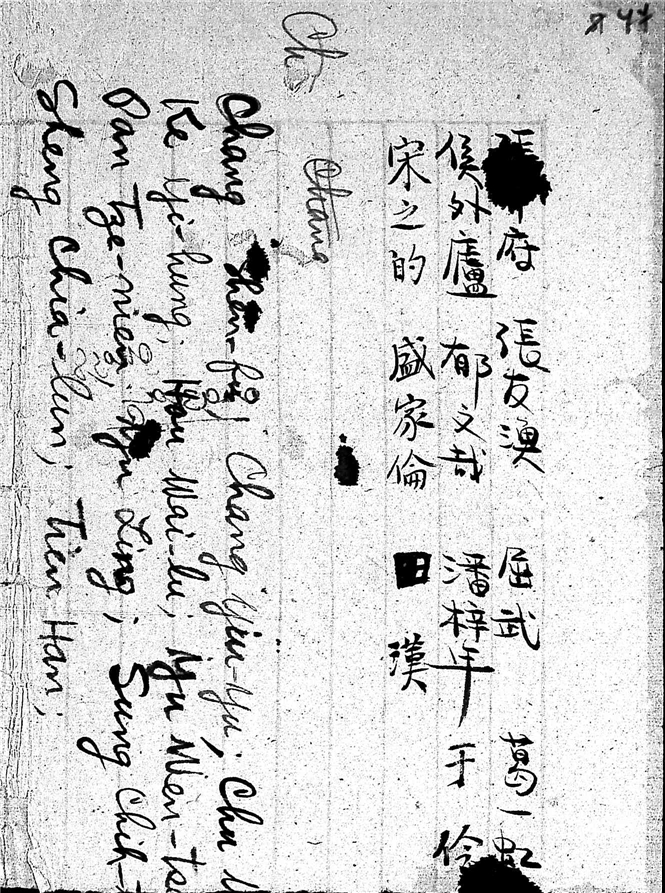 47
Ch
張 府 張友漁 屈武 葛一虹
侯外廬 郁文哉 潘梓年 于伶
宋之的 盛家倫 田漢
Chang
Chang Shen-fu; Chang Yiu-Yu; Chu
Ke Yi-hung; Hou Wai-lu; Yu Wen-tsa
Pan Tze-nien; Yu Ling; Sung Chih-
Sheng Chia-lun; Tien Han;